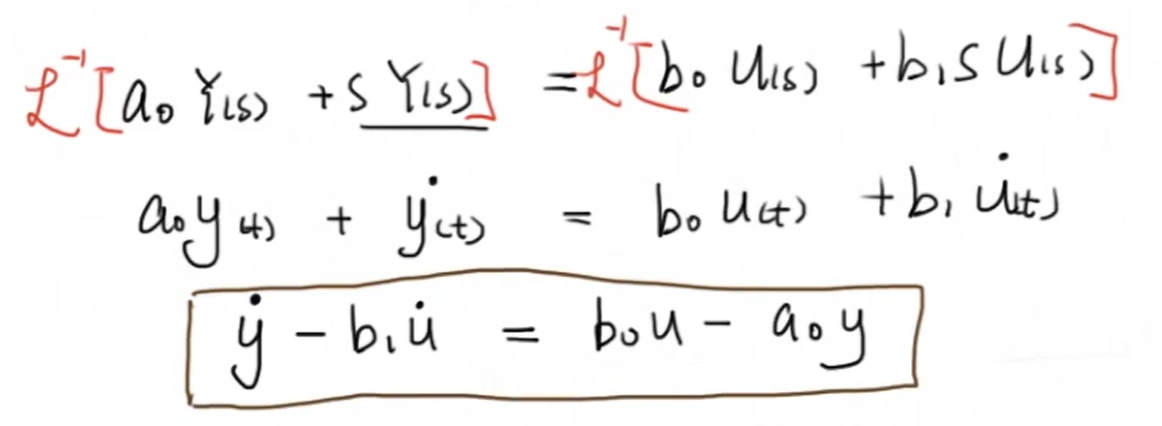 ℒ⁻¹[a₀ Y(s) + s Y(s)] = ℒ⁻¹[b₀ U(s) + b₁ s U(s)]
a₀ y(t) + ẏ(t) = b₀ u(t) + b₁ u̇(t)
ẏ − b₁ u̇ = b₀ u − a₀ y